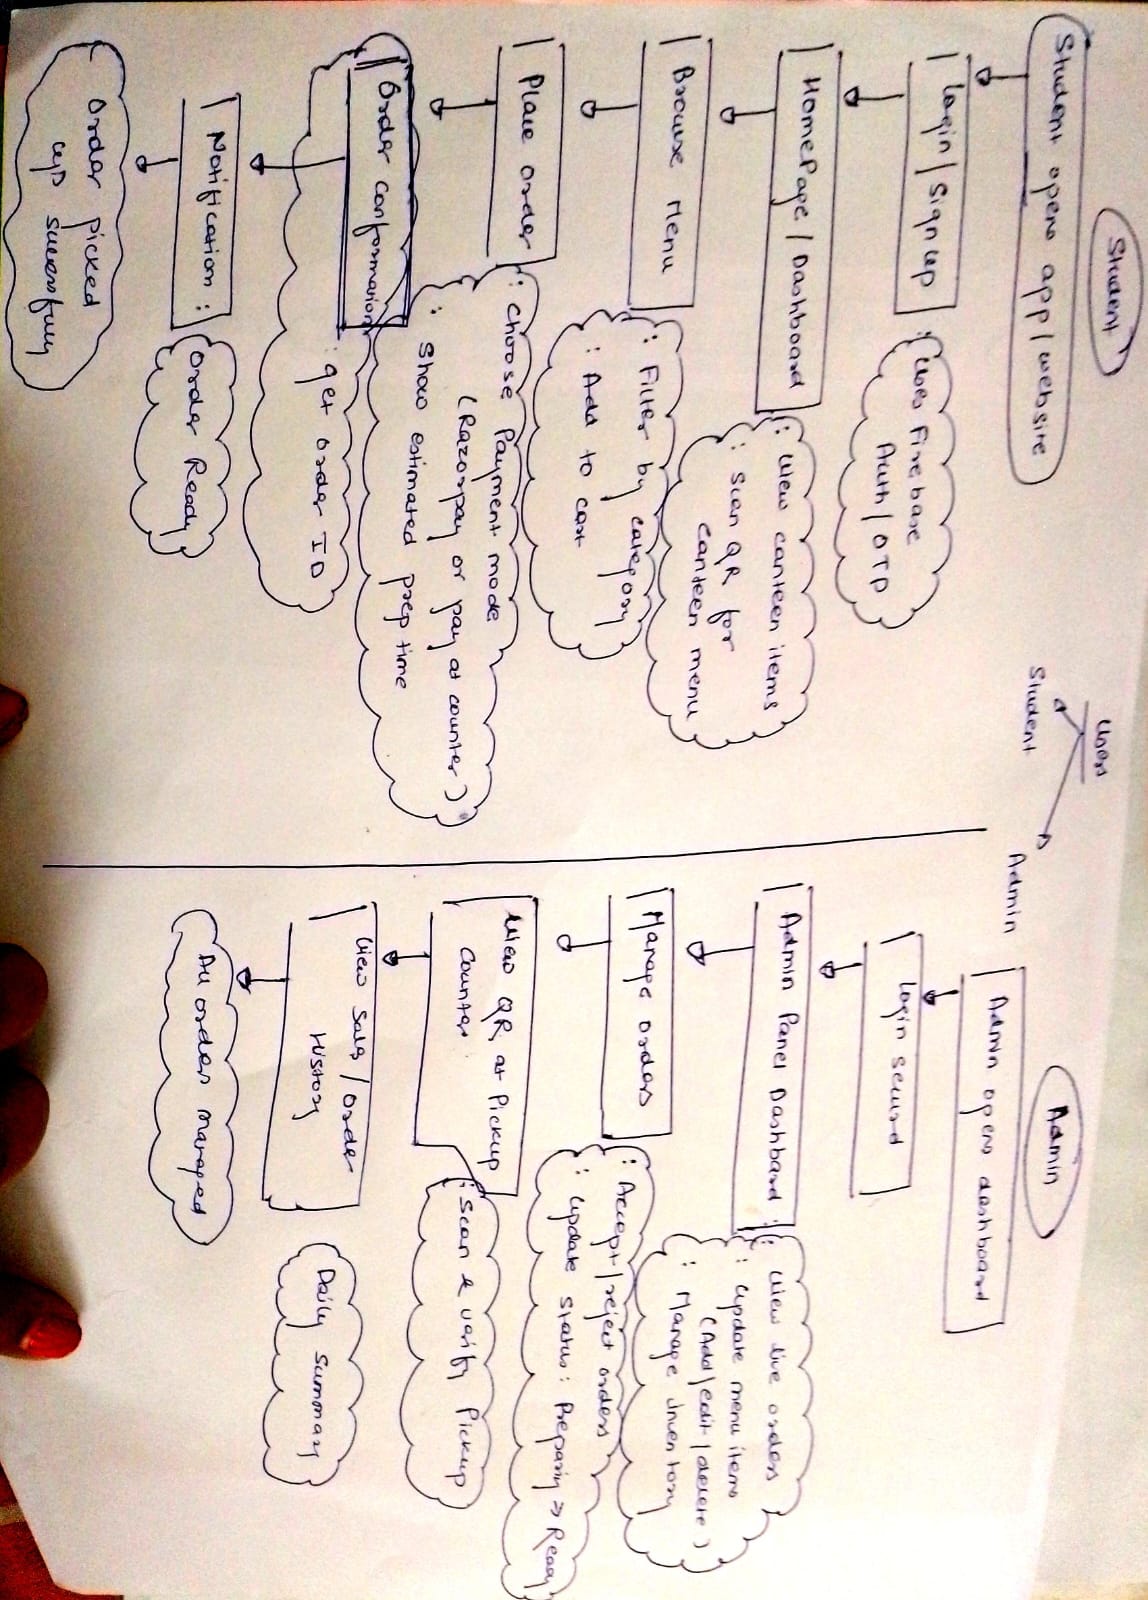 Users
Student
Admin
Student
Student opens app/website
Login/Sign up
: Uses Firebase
Auth/OTP
HomePage/Dashboard
: View canteen items
: Scan QR for
canteen menu
Browse Menu
: Filter by category
: Add to cart
Place order
: Choose Payment mode
(Razorpay or pay at counter)
: Show estimated prep time
Order conformation
: get order ID
Notification :
Order Ready
Order picked
up successfully
Admin
Admin opens dashboard
Login secured
Admin Panel Dashboard :
: View live orders
: Update menu items
(Add/edit/delete)
: Manage Inventory
Manage orders
: Accept/reject orders
: Update status: Preparing → Ready
View QR at Pickup
Counter
: Scan & verify Pickup
View Sals/Order
History
Daily Summary
All order managed